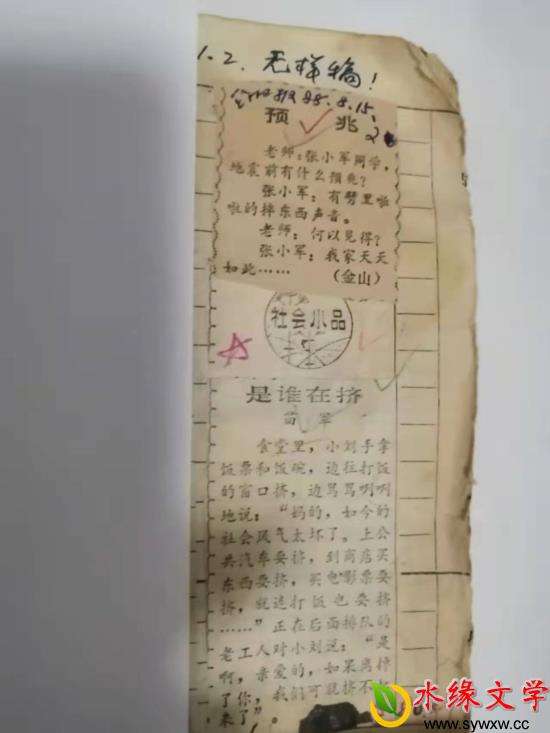 1.2. 无样稿！
报88.8.15.
预兆
老师：张小军同学，
地震前有什么预兆？
张小军：有劈里啪
啦的摔东西声音。
老师：何以见得？
张小军：我家天天
如此……（金山）
社会小品
是谁在挤
苗军
食堂里，小刘手拿
饭票和饭碗，边往打饭
的窗口挤，边骂骂咧咧
地说：“妈的，如今的
社会风气太坏了。上公
共汽车要挤，到商店买
东西要挤，买电影票要
挤，就连打饭也要挤
……”正在后面排队的
老工人对小刘说：“是
啊，亲爱的，如果离掉
了你，我们可就挤不
来了”。
水缘文学
www.sywxw.cc